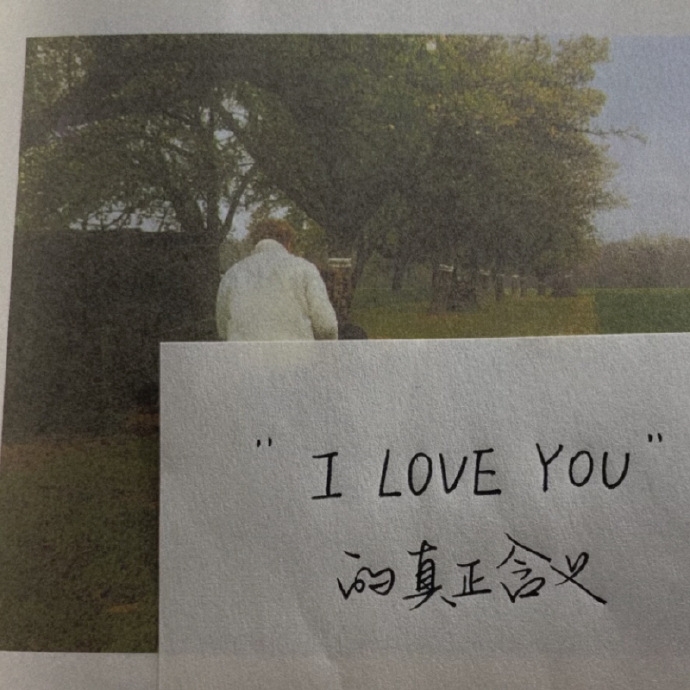 "I LOVE YOU"
的真正含义